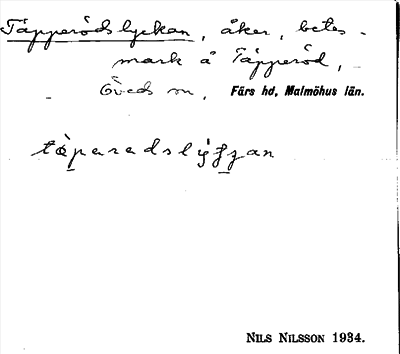 Täpperödslyckan, åker, betes-
mark å Täpperöd,
Öveds sn, Färs hd, Malmöhus län.
tæ̀peradslýʃʃan
NILS NILSSON 1934.